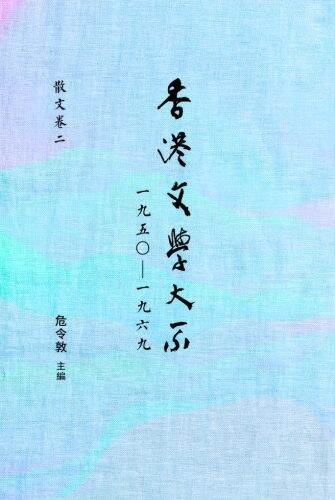 香港文學大系
一九五〇—一九六九
散文卷二
危令敦 主編